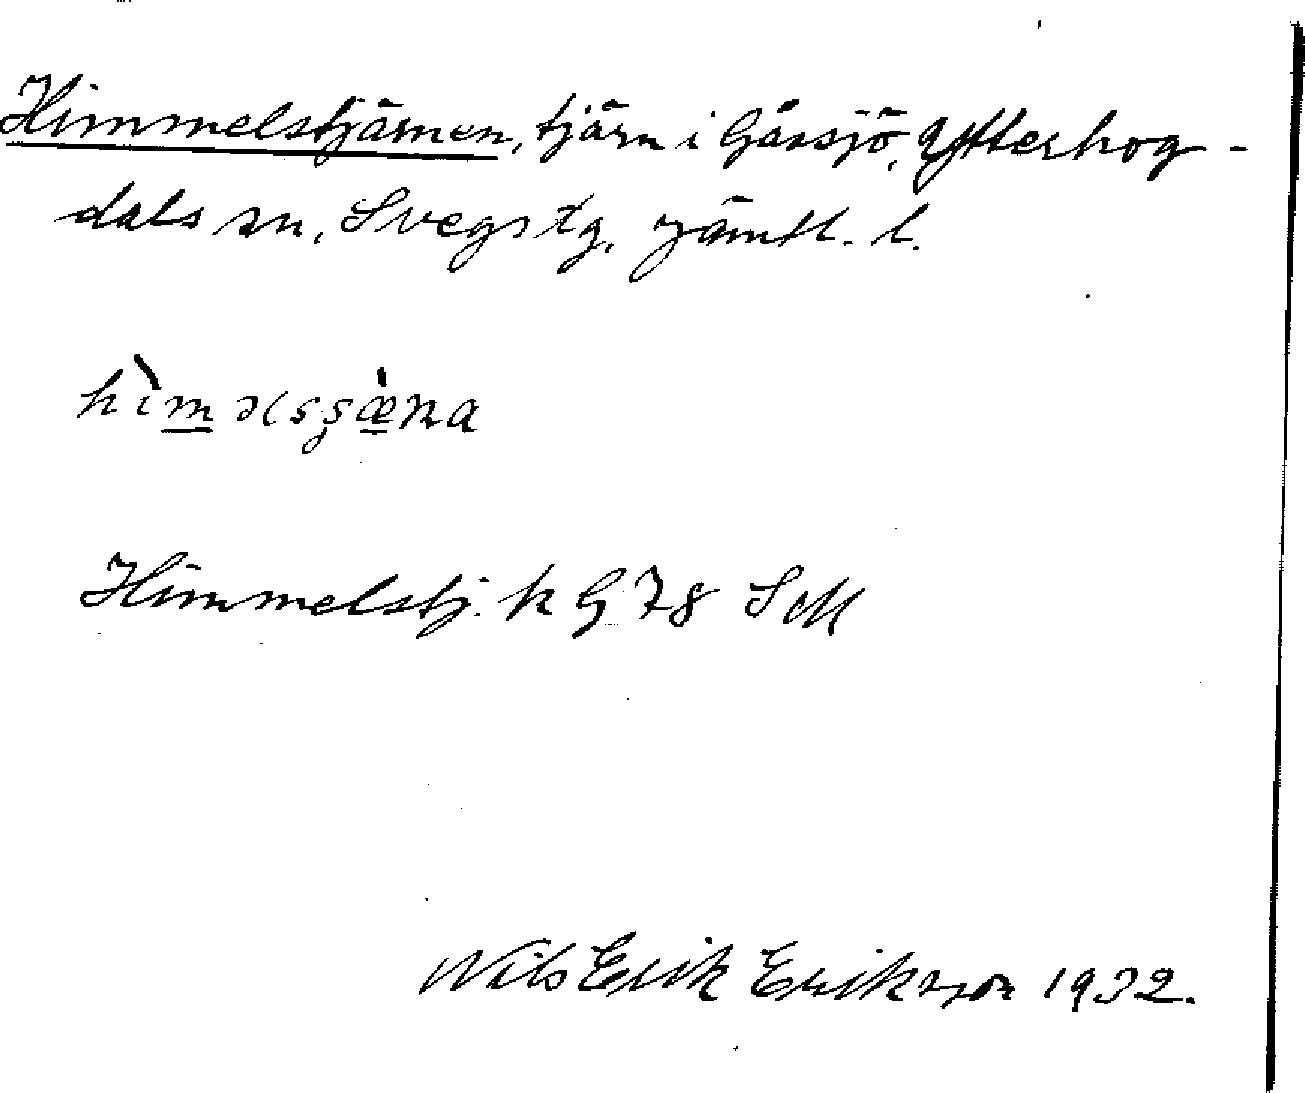 Himmelstjärnen, tjärn i Gåssjö, Ytterhog-
dals sn, Svegs tg, Jämtl. l.
hìməlsʂæ̀ɳa
Himmelstj. k G 78 SM
Nils Erik Eriksson 1932.